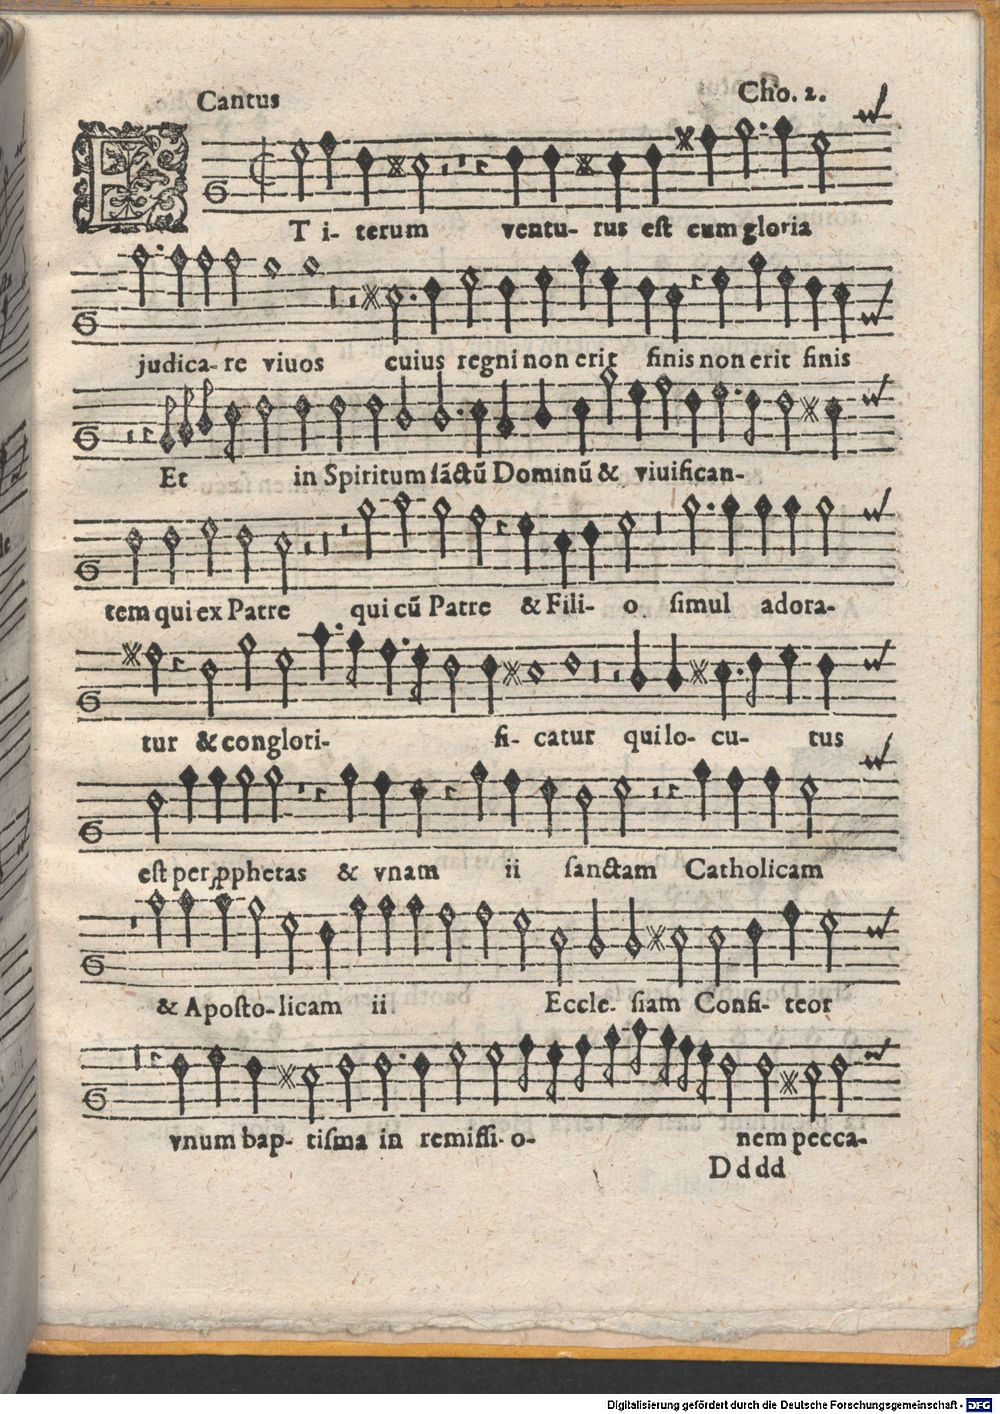 Cantus Cho. 2.
ET i- terum ventu- rus est cum gloria
judica- re viuos cuius regni non erit finis non erit finis
Et in Spiritum sāctū Dominū & viuifican-
tem qui ex Patre qui cū Patre & Fili- o simul adora-
tur & conglori- fi- catur qui lo- cu- tus
est per ꝓphetas & vnam ii sanctam Catholicam
& Aposto- licam ii Eccle- siam Confi- teor
vnum bap- tisma in remissi- o- nem pecca-
D d d d
Digitalisierung gefördert durch die Deutsche Forschungsgemeinschaft - DFG